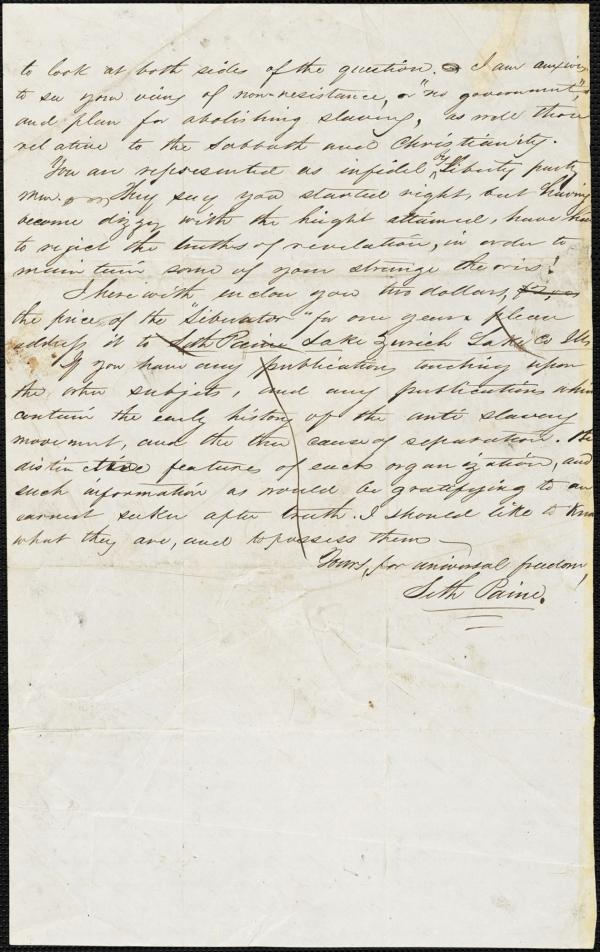 to look at both sides of the question. I am anxious
to see your views of non-resistance, or "no government,"
and plan for abolishing slavery, as well those
relative to the Sabbath and Christianity.
You are represented as infidel by Liberty party
men. They say you started right, but having
become dizzy with the hight attained, have
to reject the truths of revelation, in order to
maintain some of your strange theories!
I herewith inclose you two dollars,
the price of the "Liberator" for one year please
address it to Seth Paine Lake Zurich Lake Co Ills
If you have any publications touching upon
the other subjects, and any publications which
contain the early history of the anti slavery
movement, and the true cause of separation. The
distinctive features of each organization, and
such information as would be gratifying to an
earnest seeker after truth. I should like to know
what they are, and to possess them
Yours, for universal freedom,
Seth Paine.